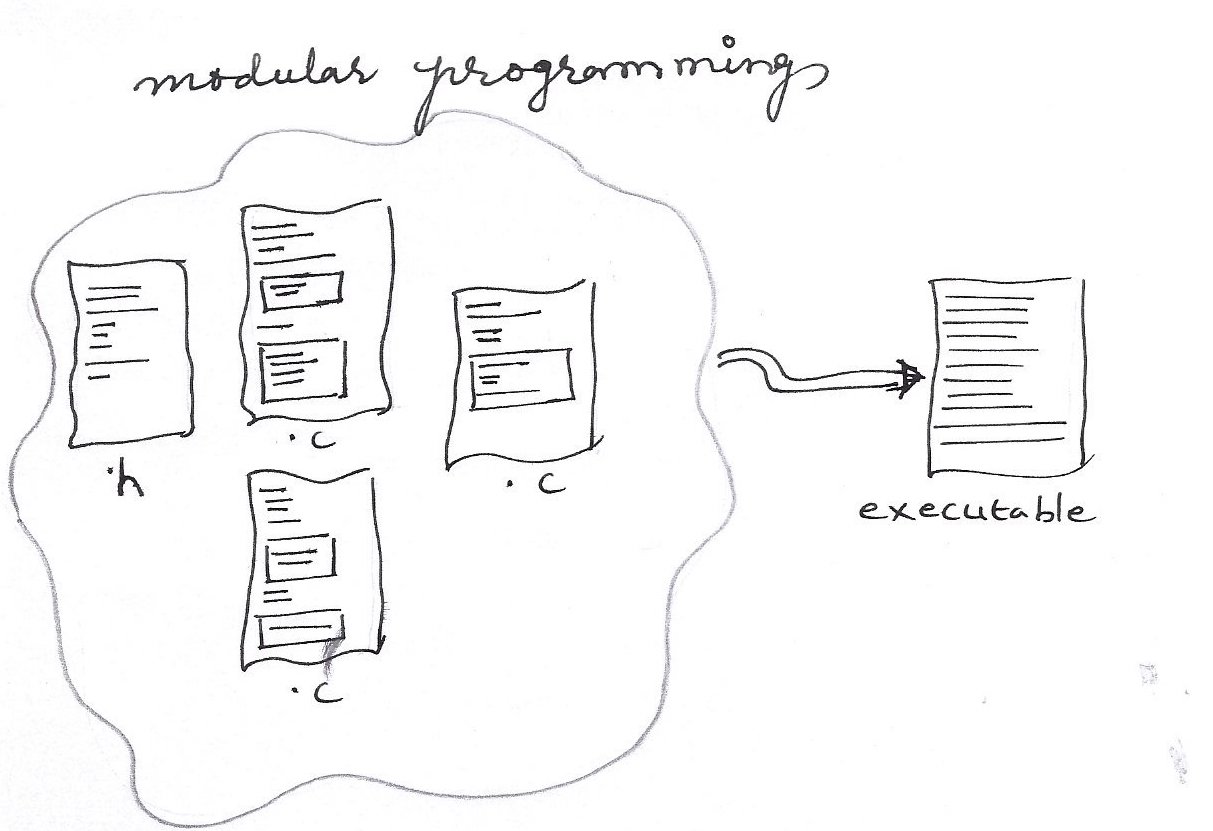 modular programming
.c
.h
.c
executable
.c